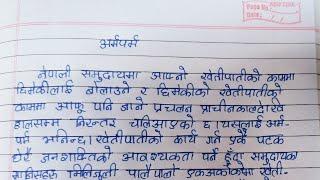 Page No.
Date:
अर्मपर्म
नेपाली समुदायमा आफ्नो खेतीपातीको काममा
छिमेकीलाई बोलाउने र छिमेकीको खेतीपातीको
काममा आफू पनि जाने प्रचलन प्राचीनकालदेखि
हालसम्म निरन्तर चलिआएको छ। यसलाई अर्म-
पर्म भनिन्छ। खेतीपातीको कार्य गर्न एकै पटक
धेरै जनशक्तिको आवश्यकता पर्ने हुँदा समुदायका
मिलिजुली पालैपालो एकअर्काकोमा खेती-